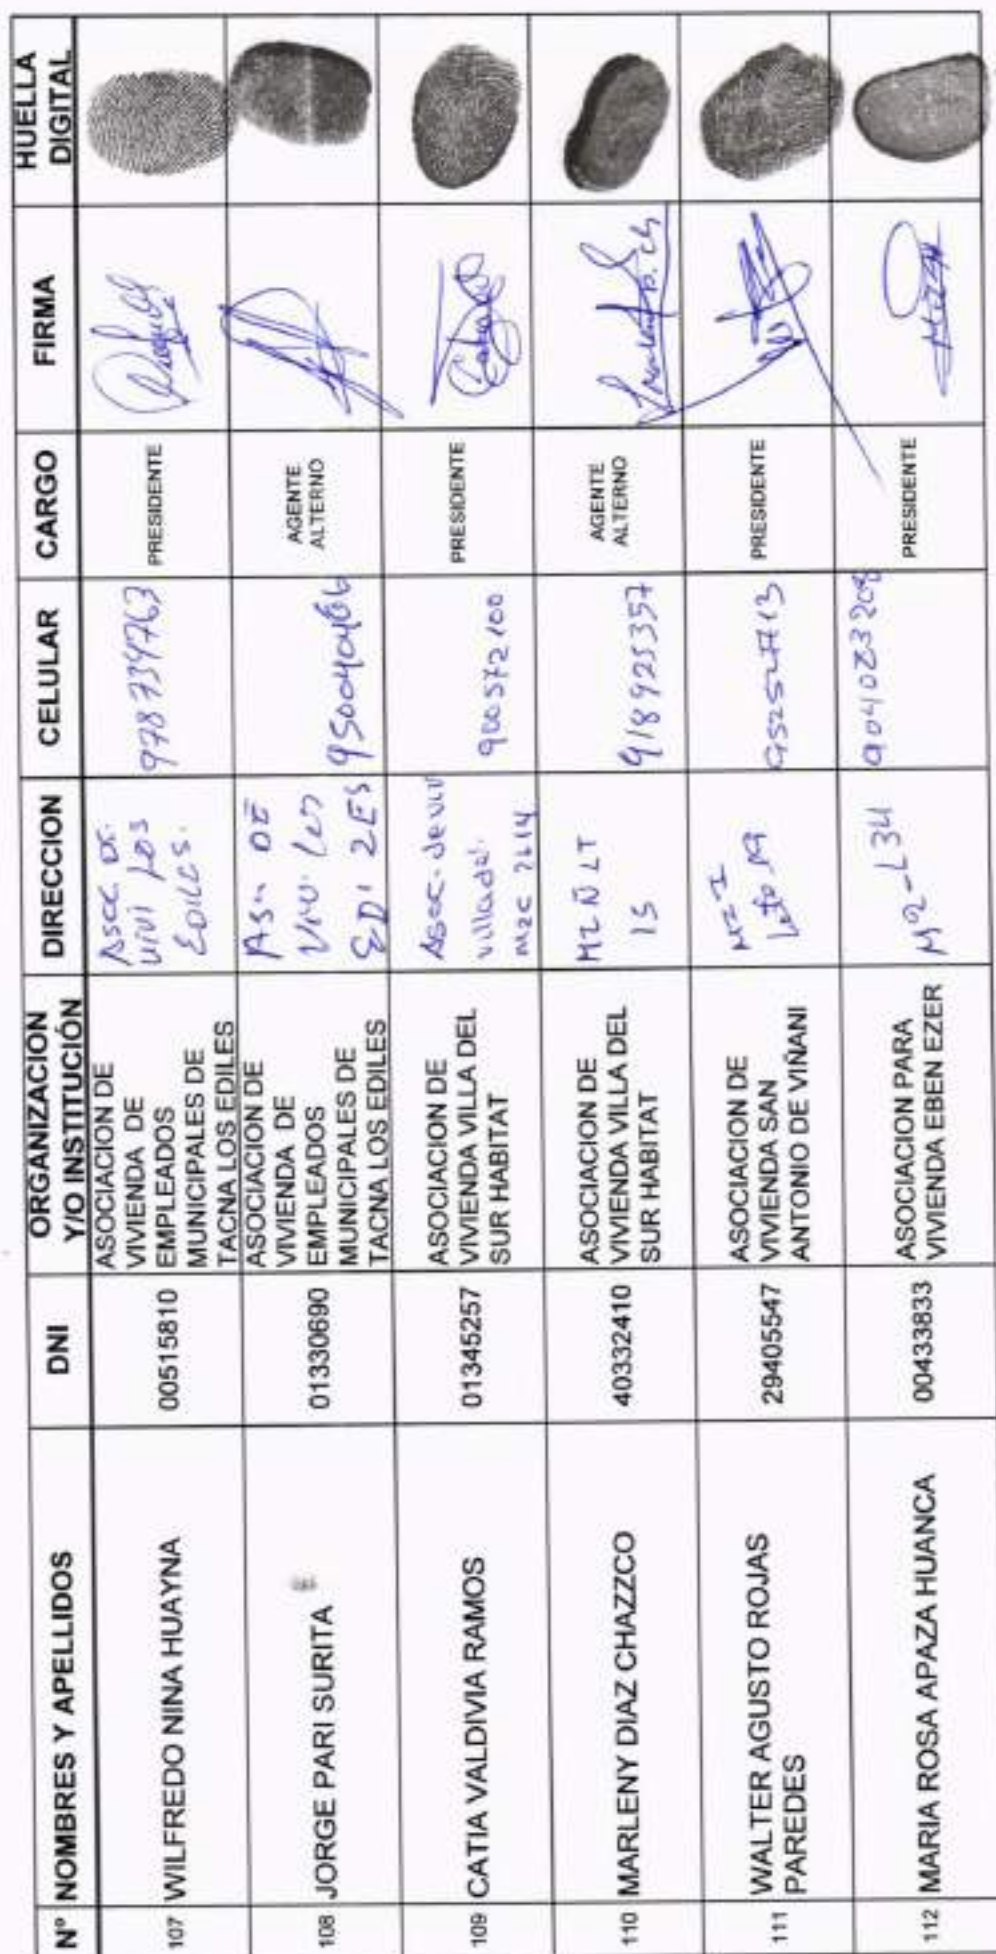 Nº NOMBRES Y APELLIDOS DNI ORGANIZACION Y/O INSTITUCIÓN DIRECCION CELULAR CARGO FIRMA HUELLA DIGITAL
107 WILFREDO NINA HUAYNA 00515810
ASOCIACION DE
VIVIENDA DE
EMPLEADOS
MUNICIPALES DE
TACNA LOS EDILES
Asoc DE.
vivi Los
978734763
PRESIDENTE
108 JORGE PARI SURITA 01330690
ASOCIACION DE
VIVIENDA DE
EMPLEADOS
MUNICIPALES DE
TACNA LOS EDILES
DE
Viv. Los
EDI LES
PRESIDENTE
AGENTE
ALTERNO
109 CATIA VALDIVIA RAMOS 01345257
ASOCIACION DE
VIVIENDA VILLA DEL
SUR HABITAT
Asoc. de viv
900572100
PRESIDENTE
110 MARLENY DIAZ CHAZZCO 40332410
ASOCIACION DE
VIVIENDA VILLA DEL
SUR HABITAT
MZ Ñ LT
15
918925357
AGENTE
ALTERNO
111 WALTER AGUSTO ROJAS
PAREDES
29405547
ASOCIACION DE
VIVIENDA SAN
ANTONIO DE VIÑANI
Mz I
PRESIDENTE
112 MARIA ROSA APAZA HUANCA 00433833
ASOCIACION PARA
VIVIENDA EBEN EZER
904023208
PRESIDENTE